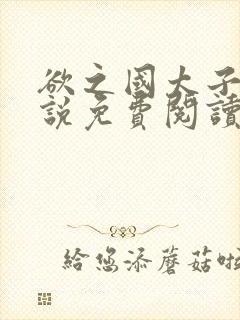 欲之國大子
說免費閱讀
給您添蘑菇啦